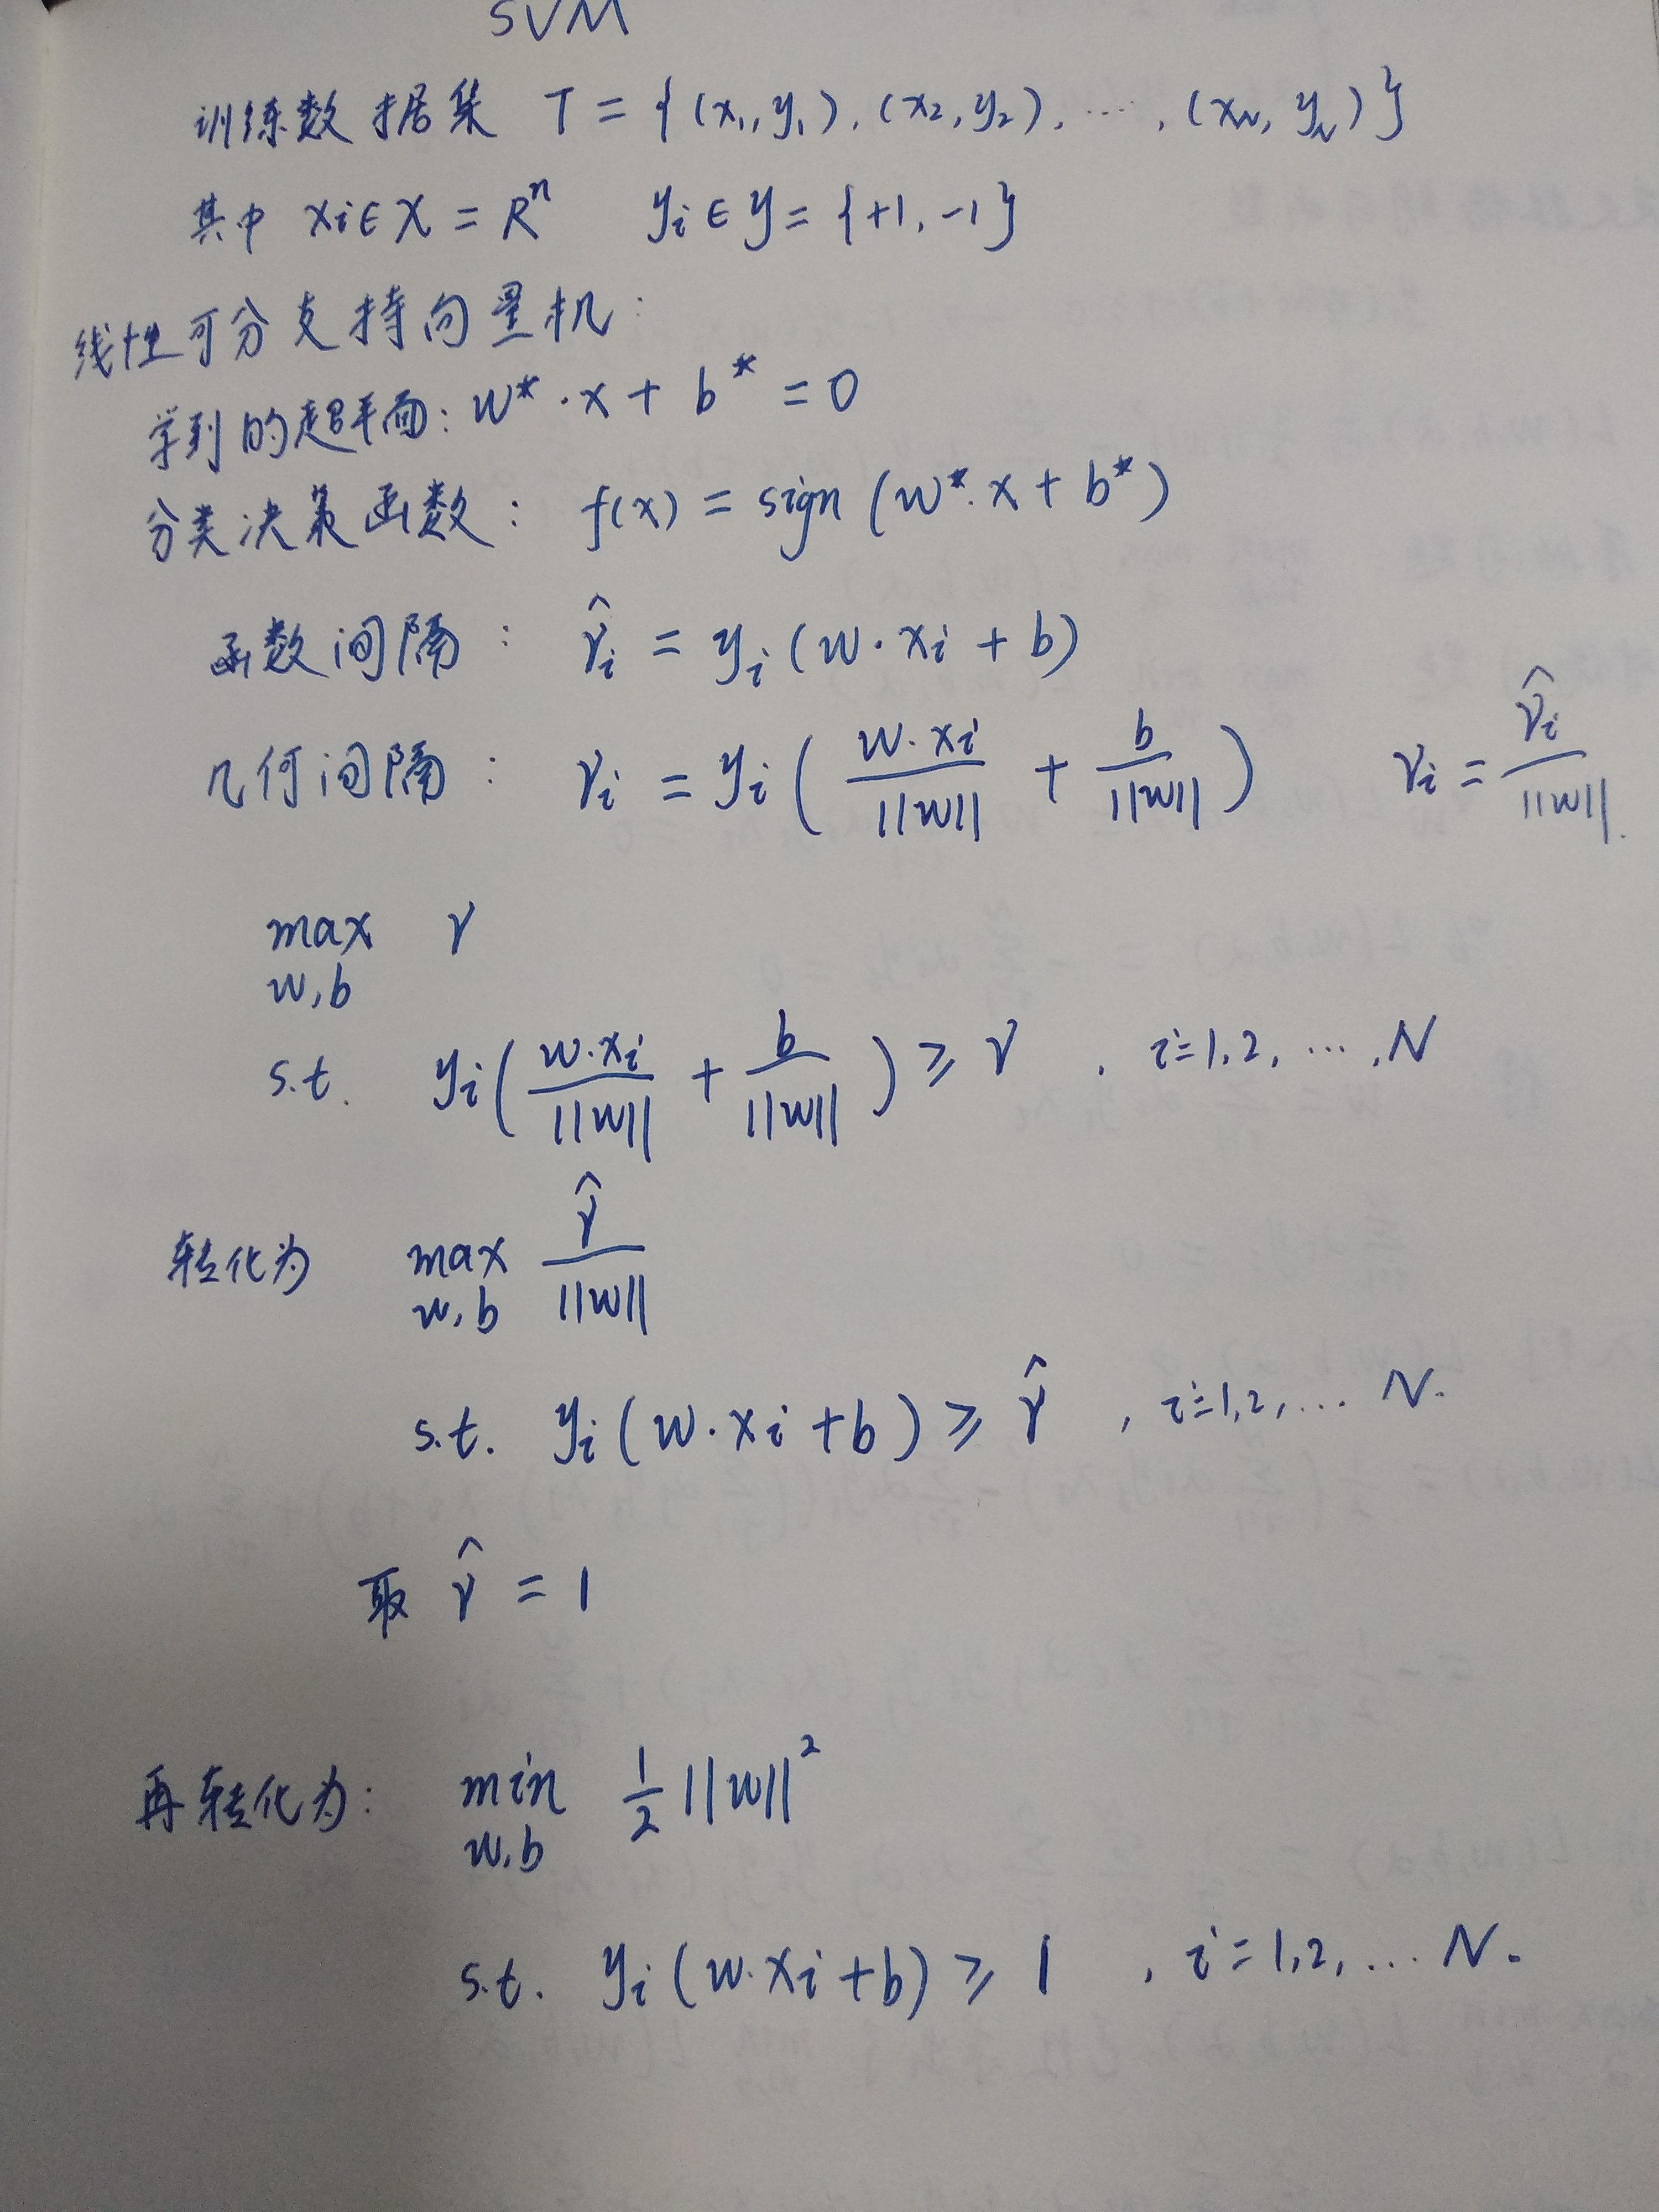 SVM
训练数据集 T = {(x₁, y₁), (x₂, y₂), ⋯, (x_N, y_N)}
其中 xᵢ ∈ X = Rⁿ yᵢ ∈ y = {+1, -1}
线性可分支持向量机:
学到的超平面: w* · x + b* = 0
分类决策函数: f(x) = sign (w* · x + b*)
函数间隔: γ̂ᵢ = yᵢ (w · xᵢ + b)
几何间隔: γᵢ = yᵢ ( w · xᵢ / ||w|| + b / ||w|| ) γᵢ = γ̂ᵢ / ||w||.
max γ
w, b
s.t. yᵢ ( w · xᵢ / ||w|| + b / ||w|| ) ⩾ γ , i = 1, 2, ⋯, N
转化为 max γ̂ / ||w||
w, b
s.t. yᵢ (w · xᵢ + b) ⩾ γ̂ , i = 1, 2, ⋯ N.
取 γ̂ = 1
再转化为: min 1/2 ||w||²
w, b
s.t. yᵢ (w · xᵢ + b) ⩾ 1 , i = 1, 2, ⋯ N.